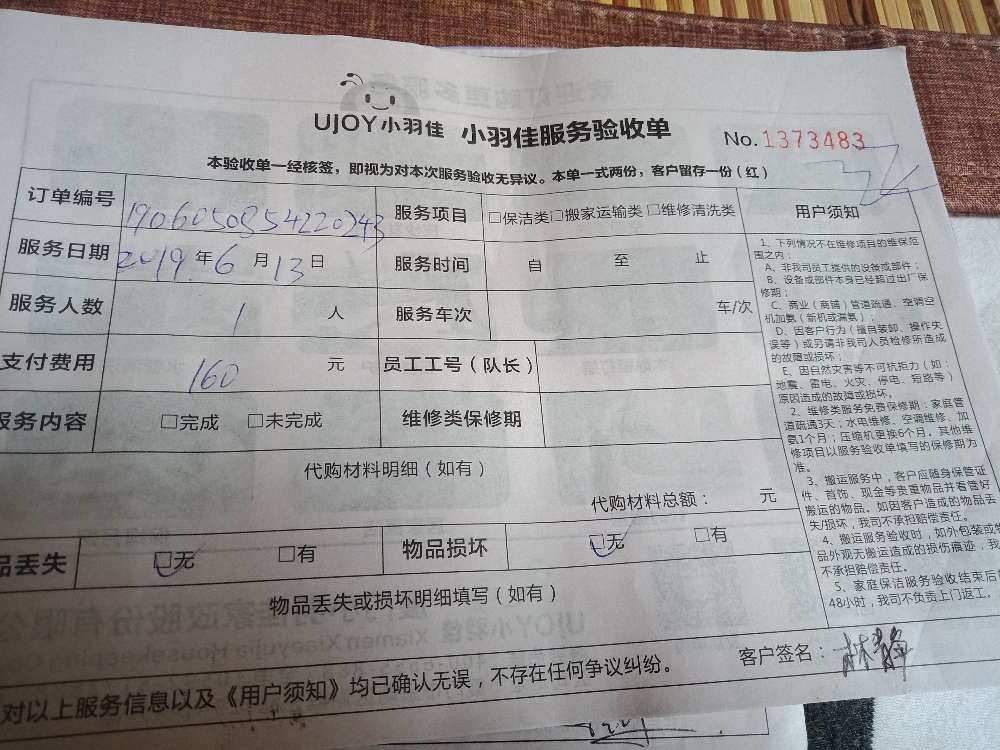 UJOY小羽佳 小羽佳服务验收单 No.1373483
本验收单一经核签，即视为对本次服务验收无异议。本单一式两份，客户留存一份（红）
订单编号 1906050854220243 服务项目 □保洁类□搬家运输类□维修清洗类 用户须知
服务日期 2019年6月13日 服务时间 自 至 止
服务人数 1 人 服务车次 车/次
支付费用 160 元 员工工号（队长）
服务内容 □完成 □未完成 维修类保修期
代购材料明细（如有）
代购材料总额： 元
品丢失 □无 □有 物品损坏 □无 □有
物品丢失或损坏明细填写（如有）
对以上服务信息以及《用户须知》均已确认无误，不存在任何争议纠纷。 客户签名：
1、下列情况不在维修项目的维保范
围之内：
A、非我司员工提供的设备或部件；
B、设备或部件本身已经超过出厂保
修期；
C、商业（商铺）管道疏通、空调空
机加氨（新机或漏氨）；
D、因客户行为（擅自装卸、操作失
误等）或另请非我司人员检修所造成
的故障或损坏；
E、因自然灾害等不可抗拒力（如：
地震、雷电、火灾、停电、短路等）
原因造成的故障或损坏。
2、维修类服务免费保修期：家庭管
道疏通3天；水电维修、空调维修、加
氨1个月；压缩机更换6个月。其他维
修项目以服务验收单填写的保修期为
准。
3、搬运服务中，客户应随身保管证
件、首饰、现金等贵重物品并看管好
搬运的物品。如因客户造成的物品丢
失/损坏，我司不承担赔偿责任。
4、搬运服务验收时，如外包装或物
品外观无搬运造成的损伤痕迹，我
不承担赔偿责任。
5、家庭保洁服务验收结束后
48小时，我司不负责上门返工。